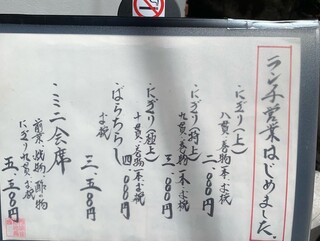 ランチ営業はじめました.
・にぎり(上)
八貫、巻物一本、お椀
二、〇〇〇円
・にぎり(特上)
九貫、巻物一本、お椀
三、〇〇〇円
・にぎり(極上)
十貫、巻物一本、お椀
四、〇〇〇円
・ばらちらし
お椀
三、五〇〇円
・ミニ会席
前菜、焼物、酢の物
にぎり九貫、お椀
五、五〇〇円